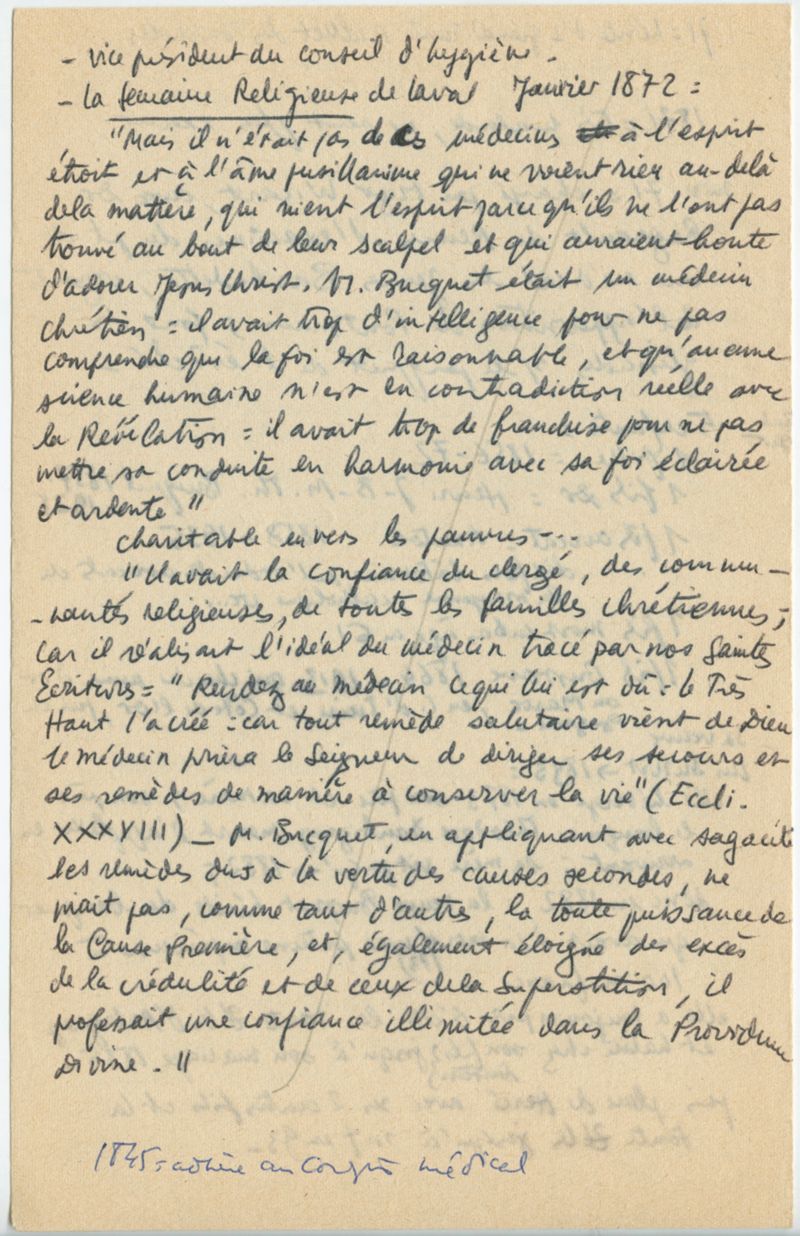 - vice président du conseil d'hygiène -
- La Semaine Religieuse de Laval Janvier 1872 =
"Mais il n'était pas de ces médecins à l'esprit
étroit et à l'âme pusillanime qui ne voient rien au-delà
de la matière, qui nient l'esprit parce qu'ils ne l'ont pas
trouvé au bout de leur scalpel et qui auraient honte
d'adorer Jésus Christ. M. Bucquet était un médecin
chrétien = il avait trop d'intelligence pour ne pas
comprendre que la foi est raisonnable, et qu'aucune
science humaine n'est en contradiction réelle avec
la Révélation = il avait trop de franchise pour ne pas
mettre sa conduite en harmonie avec sa foi éclairée
et ardente"
charitable envers les pauvres - ...
"Il avait la confiance du clergé, des commu-
-nautés religieuses, de toutes les familles chrétiennes,
car il réalisait l'idéal du médecin tracé par nos Saintes
Ecritures = "Rendez au médecin ce qui lui est dû = le Très
Haut l'a créé = car tout remède salutaire vient de Dieu
le médecin priera le Seigneur de diriger ses secours et
ses remèdes de manière à conserver la vie" (Eccli.
XXXVIII) - M. Bucquet, en appliquant avec sagacité
les remèdes dus à la vertu des causes secondes, ne
niait pas, comme tant d'autres, la toute puissance de
la Cause Première, et, également éloigné des excès
de la crédulité et de ceux de la Superstition, il
professait une confiance illimitée dans la Providence
Divine. "
1845 = adhère au Congrès médical